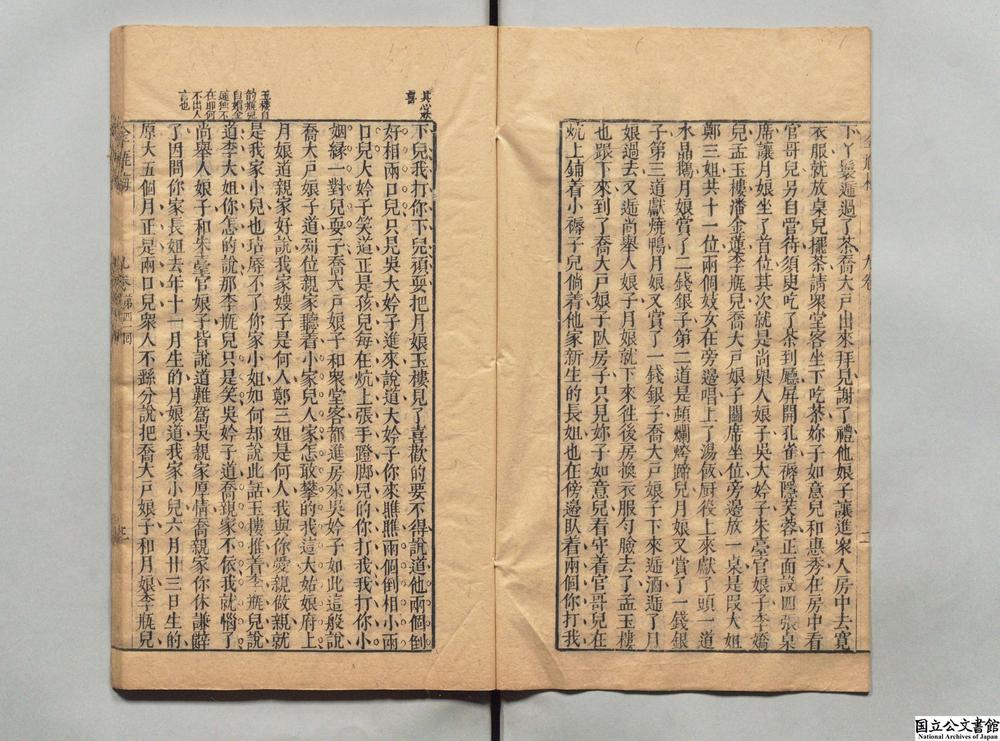 下丫鬟遞過了茶喬大戶出來拜見謝了禮他娘子讓進衆人房中去寬
衣服就放桌兒擺茶請衆堂客坐下吃茶妳子如意兒和惠秀在房中看
官哥兒另自管待須臾吃了茶到廳屏開孔雀褥隱芙蓉正面設四張桌
席讓月娘坐了首位其次就是尚舉人娘子吳大妗子朱臺官娘子李嬌
兒孟玉樓潘金蓮李瓶兒喬大戶娘子關席坐位旁邊放一桌是叚大姐
鄭三姐共十一位兩個妓女在旁邊唱上了湯飯厨役上來獻了頭一道
水晶鵝月娘賞了二錢銀子第二道是頓爛烤蹄兒月娘又賞了一錢銀
子第三道獻燒鴨月娘又賞了一錢銀子喬大戶娘子下來遞酒遞了月
娘過去又遞尚舉人娘子月娘就下來徃後房換衣服勻臉去了孟玉樓
也跟下來到了喬大戶娘子臥房子只見妳子如意兒看守着官哥兒在
炕上鋪着小褥子兒倘着他家新生的長姐也在傍邊臥着兩個你打我
下兒我打你下兒頑耍把月娘玉樓見了喜歡的要不得說道他兩個倒
好相兩口兒只見吳大妗子進來說道大妗子你來瞧瞧兩個倒相小兩
口兒大妗子笑道正是孩兒每在炕上張手蹬脚兒的你打我我打你小
姻緣一對兒耍子喬大戶娘子和衆堂客都進房來吳妗子如此這般說
喬大戶娘子道列位親家聽着小家兒人家怎敢攀的我這大姑娘府上
月娘道親家好說我家嫂子是何人鄭三姐是何人我與你愛親做親就
是我家小兒也玷辱不了你家小姐如何却說此話玉樓推着李瓶兒說
道李大姐你怎的說那李瓶兒只是笑吳妗子道喬親家不依我就惱了
尚舉人娘子和朱臺官娘子皆說道難爲吳親家厚情喬親家你休謙辭
了因問你家長姐去年十一月生的月娘道我家小兒六月卄三日生的
原大五個月正是兩口兒衆人不繇分說把喬大戶娘子和月娘李瓶兒
其心欢
喜
玉樓自
言也
第四一回
国立公文書館
National Archives of Japan